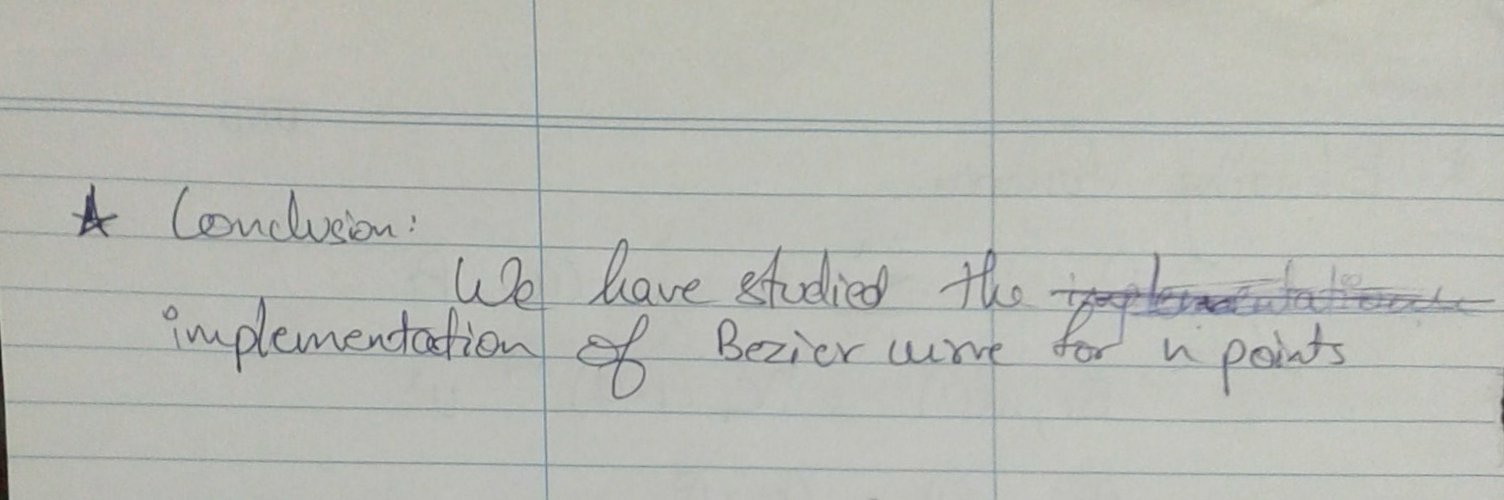 ★ Conclusion:
We have studied the implementation
implementation of Bezier curve for n points